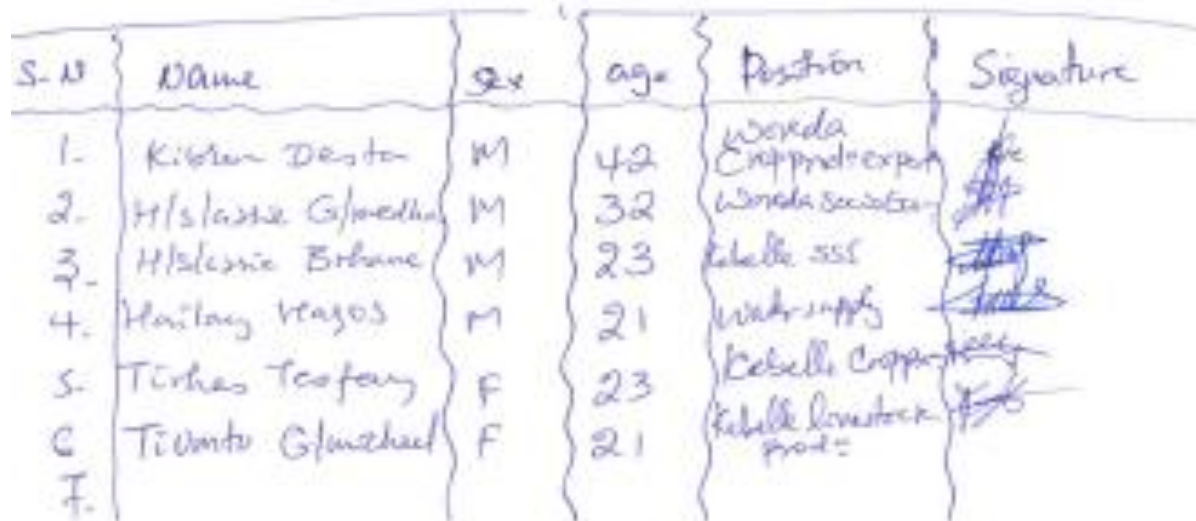 S-N Name Sex age Position Signature
1- Kibrom Desta M 42 Woreda Crop prod= expert
2- H/slassie G/medhn M 32 Woreda
3- H/slassie Brhane M 23 Kebelle SSI
4. Hailay Hagos M 21 Water supply
5- Tirhas Tesfay F 23 Kebelle Crop
6 G/michael F 21 Kebelle livestock prod=
7-